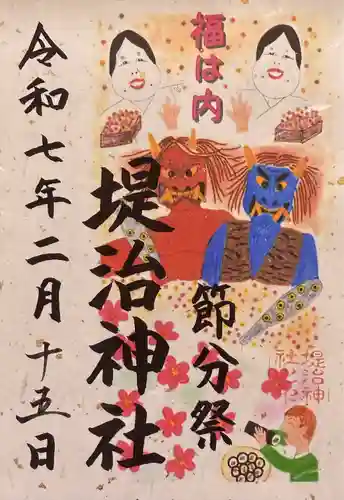 福は内
節分祭
堤治神社
令和七年二月十五日
堤治神
社